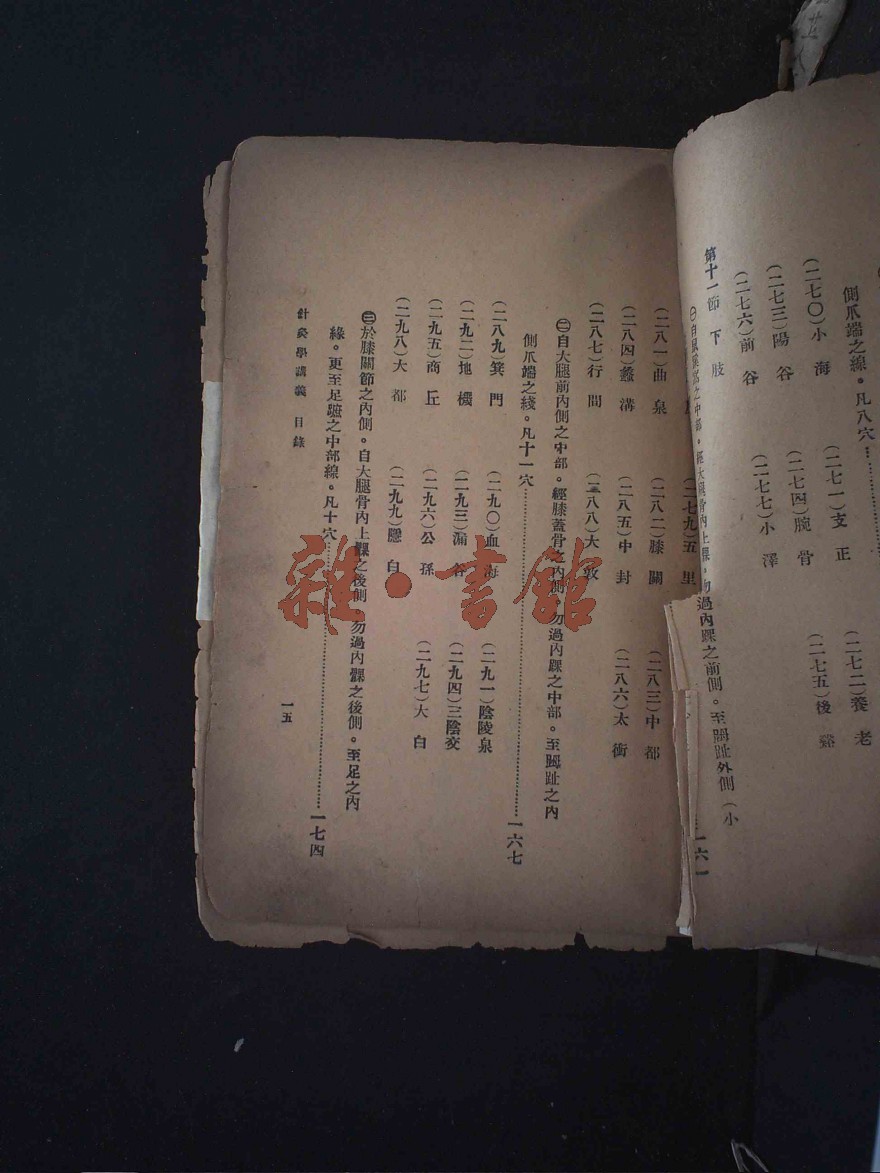 側爪端之線。凡八穴
(二七〇)小海
(二七一)支正
(二七二)養老
(二七三)陽谷
(二七四)腕骨
(二七五)後谿
(二七六)前谷
(二七七)小澤
第十一節 下肢
之中部。經大腿骨內上髁。勿過內踝之前側。至𧿹趾外側(小
一六一
(二七九)五里
(二八一)曲泉
(二八二)膝關
(二八三)中都
(二八四)蠡溝
(二八五)中封
(二八六)太衝
(二八七)行間
(二八八)大敦
㊁自大腿前內側之中部。經膝蓋骨之內側 勿過內踝之中部。至𧿹趾之內
側爪端之綫。凡十一穴……一六七
(二八九)箕門
(二九〇)血海
(二九一)陰陵泉
(二九二)地機
(二九三)漏谷
(二九四)三陰交
(二九五)商丘
(二九六)公孫
(二九七)大白
(二九八)大都
(二九九)隱白
㊂於膝關節之內側。自大腿骨內上髁之後側 勿過內踝之後側。至足之內
緣。更至足蹠之中部線。凡十穴……一七四
針灸學講義 目錄
一五
雜·書館